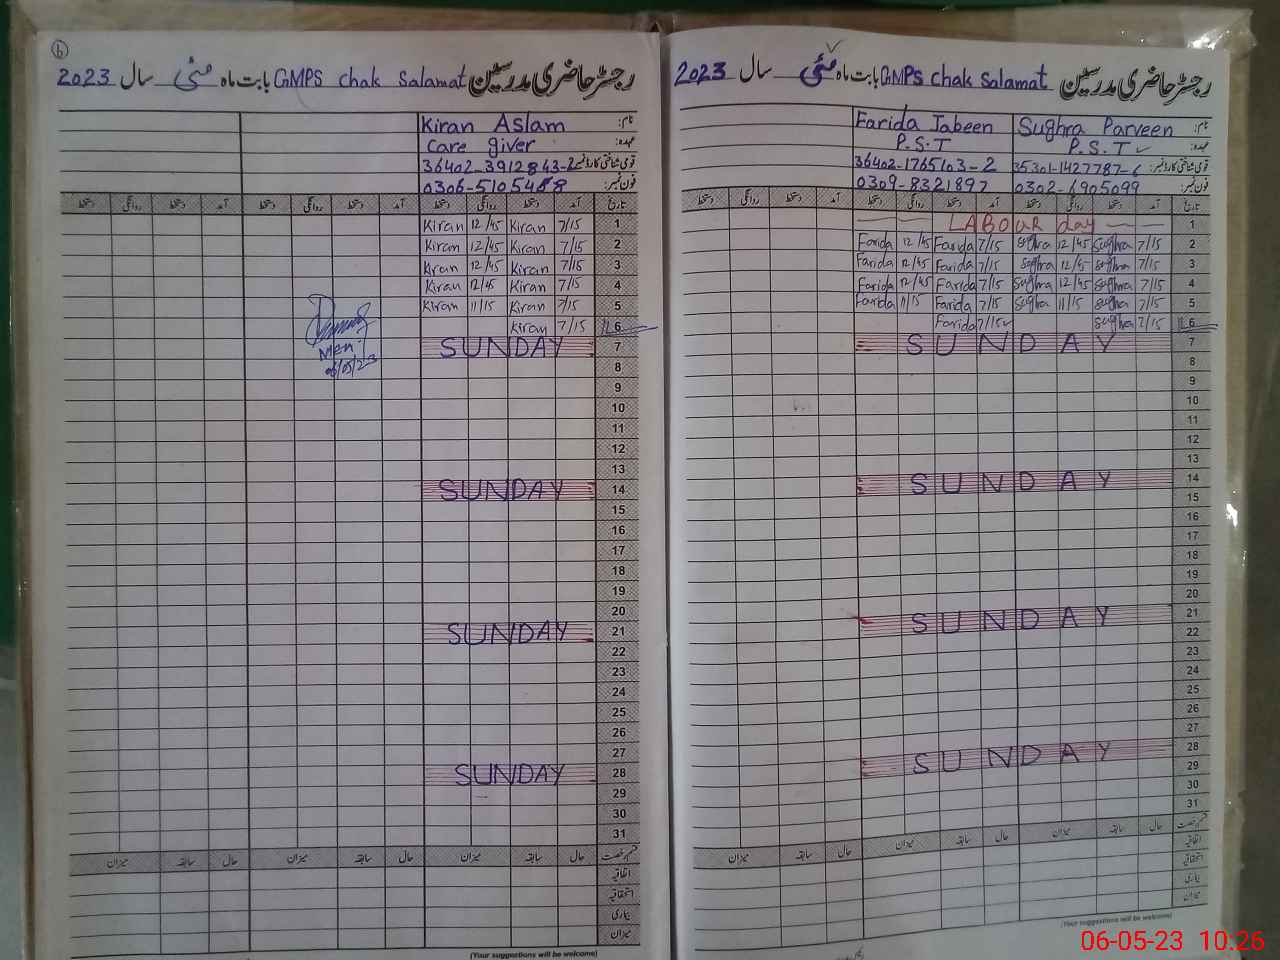 رجسٹر حاضری مدرسین GMPS chak Salamat بابت ماہ مئی سال 2023
نام: Kiran Aslam
عہدہ: Care giver
قومی شناختی کارڈ نمبر: 36402-3912843-2
فون نمبر:
تاریخ آمد دستخط روانگی دستخط آمد دستخط روانگی دستخط آمد دستخط روانگی دستخط
1 7/15 Kiran 12/45 Kiran
2 7/15 Kiran 12/45 Kiran
3 7/15 Kiran 12/45 Kiran
4 7/15 Kiran 12/45 Kiran
5 7/15 Kiran 11/15 Kiran
6 7/15 Kiran
7 SUNDAY
8
9
10
11
12
13
14 SUNDAY
15
16
17
18
19
20
21 SUNDAY
22
23
24
25
26
27
28 SUNDAY
29
30
31
قسم رخصت حال سابقہ میزان حال سابقہ میزان حال سابقہ میزان
اتفاقیہ
استحقاقیہ
بیماری
میزان
(Your suggestions will be welcome)
MEA
06/05/23
رجسٹر حاضری مدرسین GMPS chak Salamat بابت ماہ مئی سال 2023
نام: Sughra Parveen Farida Jabeen
عہدہ: P.S.T P.S.T
قومی شناختی کارڈ نمبر: 35301-1427787-6 36402-1765103-2
فون نمبر: 0302-6905099 0309-8321897
تاریخ آمد دستخط روانگی دستخط آمد دستخط روانگی دستخط آمد دستخط روانگی دستخط
1 LABOUR day
2 7/15 Sughra 12/45 Sughra 7/15 Farida 12/45 Farida
3 7/15 Sughra 12/45 Sughra 7/15 Farida 12/45 Farida
4 7/15 Sughra 12/45 Sughra 7/15 Farida 12/45 Farida
5 7/15 Sughra 11/15 Sughra 7/15 Farida 11/15 Farida
6 7/15 Sughra 7/15 Farida
7 SUNDAY
8
9
10
11
12
13
14 SUNDAY
15
16
17
18
19
20
21 SUNDAY
22
23
24
25
26
27
28 SUNDAY
29
30
31
قسم رخصت حال سابقہ میزان حال سابقہ میزان حال سابقہ میزان
اتفاقیہ
استحقاقیہ
بیماری
میزان
(Your suggestions will be welcome)
06-05-23 10:26